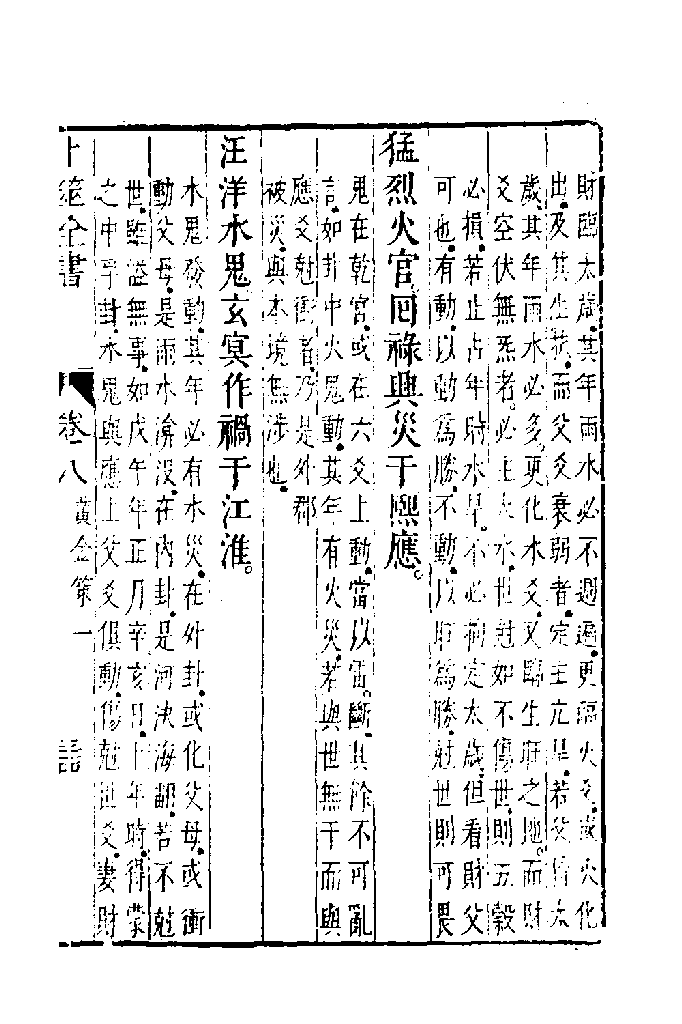 財臨太歲其年雨水必不週遍更臨火爻或火化
出及其生扶而父爻衰弱者定主亢旱若父值太
歲其年雨水必多更化水爻又臨生旺之地而財
爻空伏無炁者必主大水世尅如不傷世則五穀
必損若止占年時水旱不必拘定太歲但看財父
可也有動以動為勝不動以旺為勝尅世則可畏
猛烈火官回祿興災于熙應
鬼在乾宮或在六爻上動當以雷斷其餘不可亂
言如卦中火鬼動其年有火災若與世無干而與
應爻尅衝者乃是外郡
被災與本境無涉也
汪洋水鬼玄冥作禍于江淮
水鬼發動其年必有水災在外卦或化父母或衝
動父母是雨水渰沒在內卦是河決海翻若不尅
世雖溢無事如戊午年正月辛亥日卜年時得蒙
之中孚卦水鬼與應上父爻俱動傷尅世爻妻財
卜筮全書 卷八 黃金策一